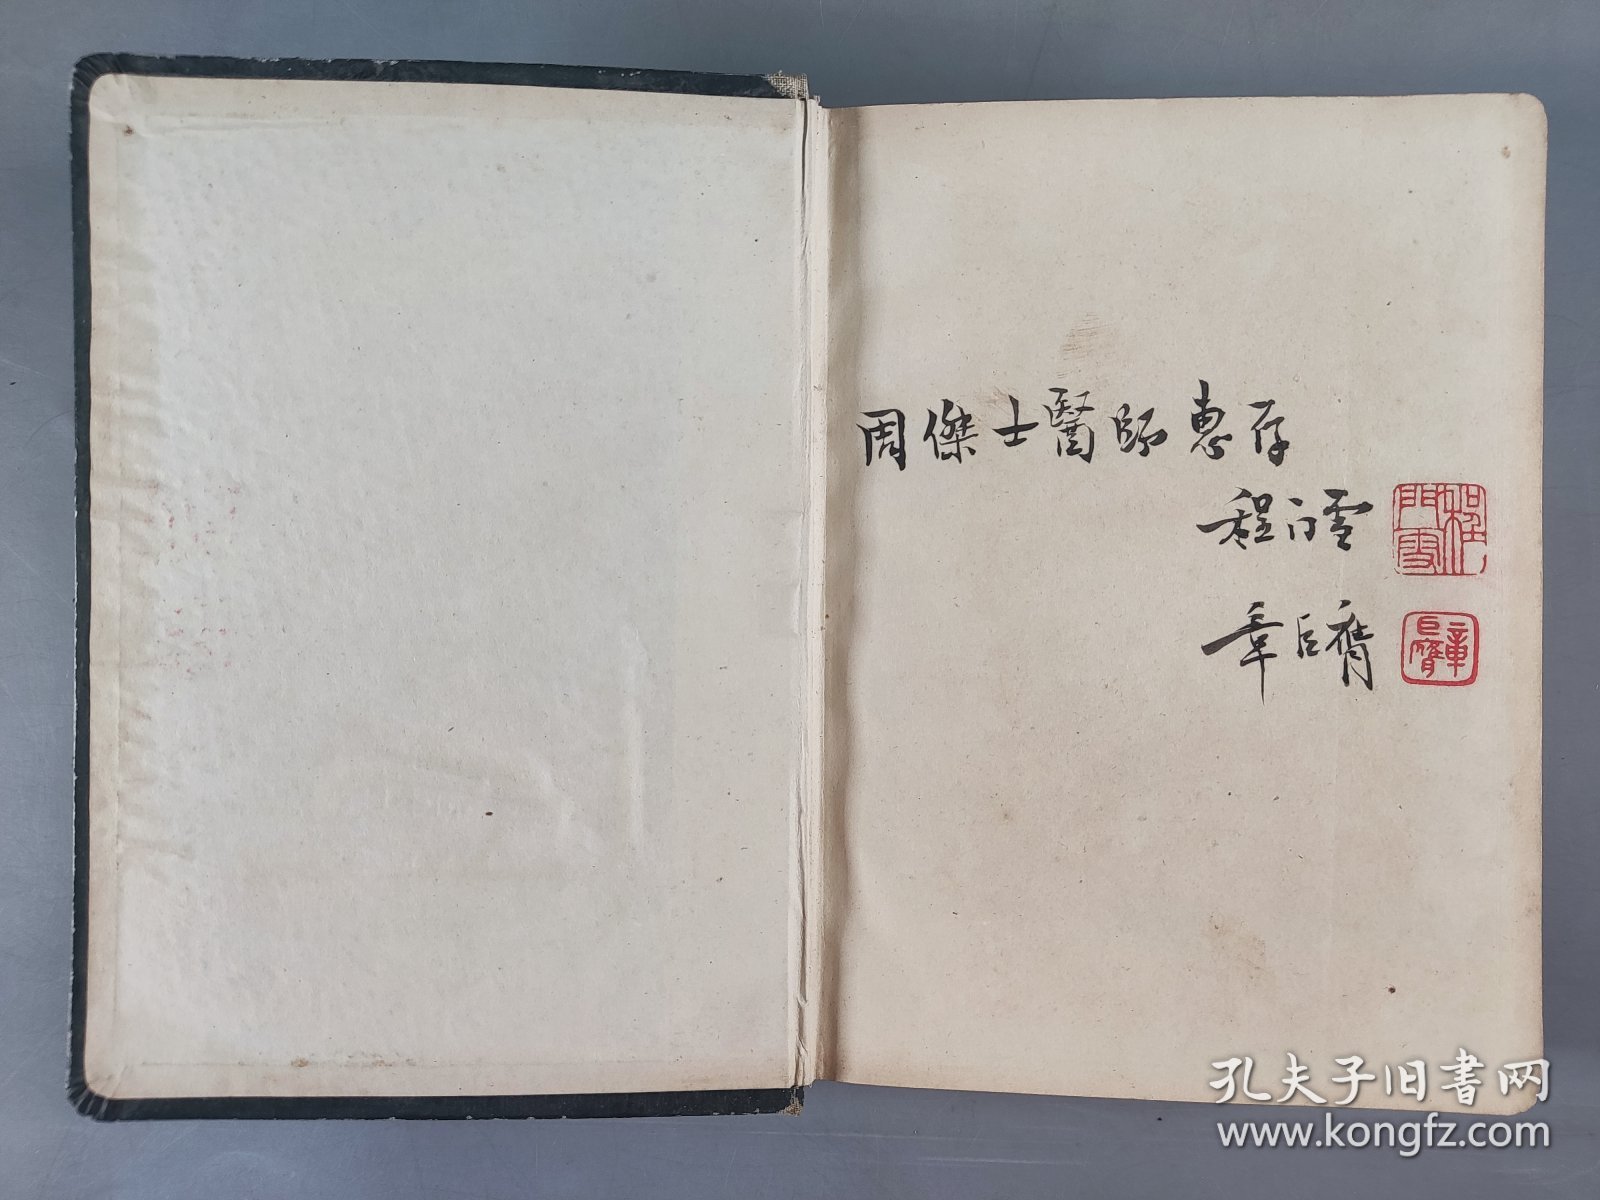 周傑士醫師惠存
程门雪
程門雪
章巨膺
章巨膺
孔夫子旧书网
www.kongfz.com